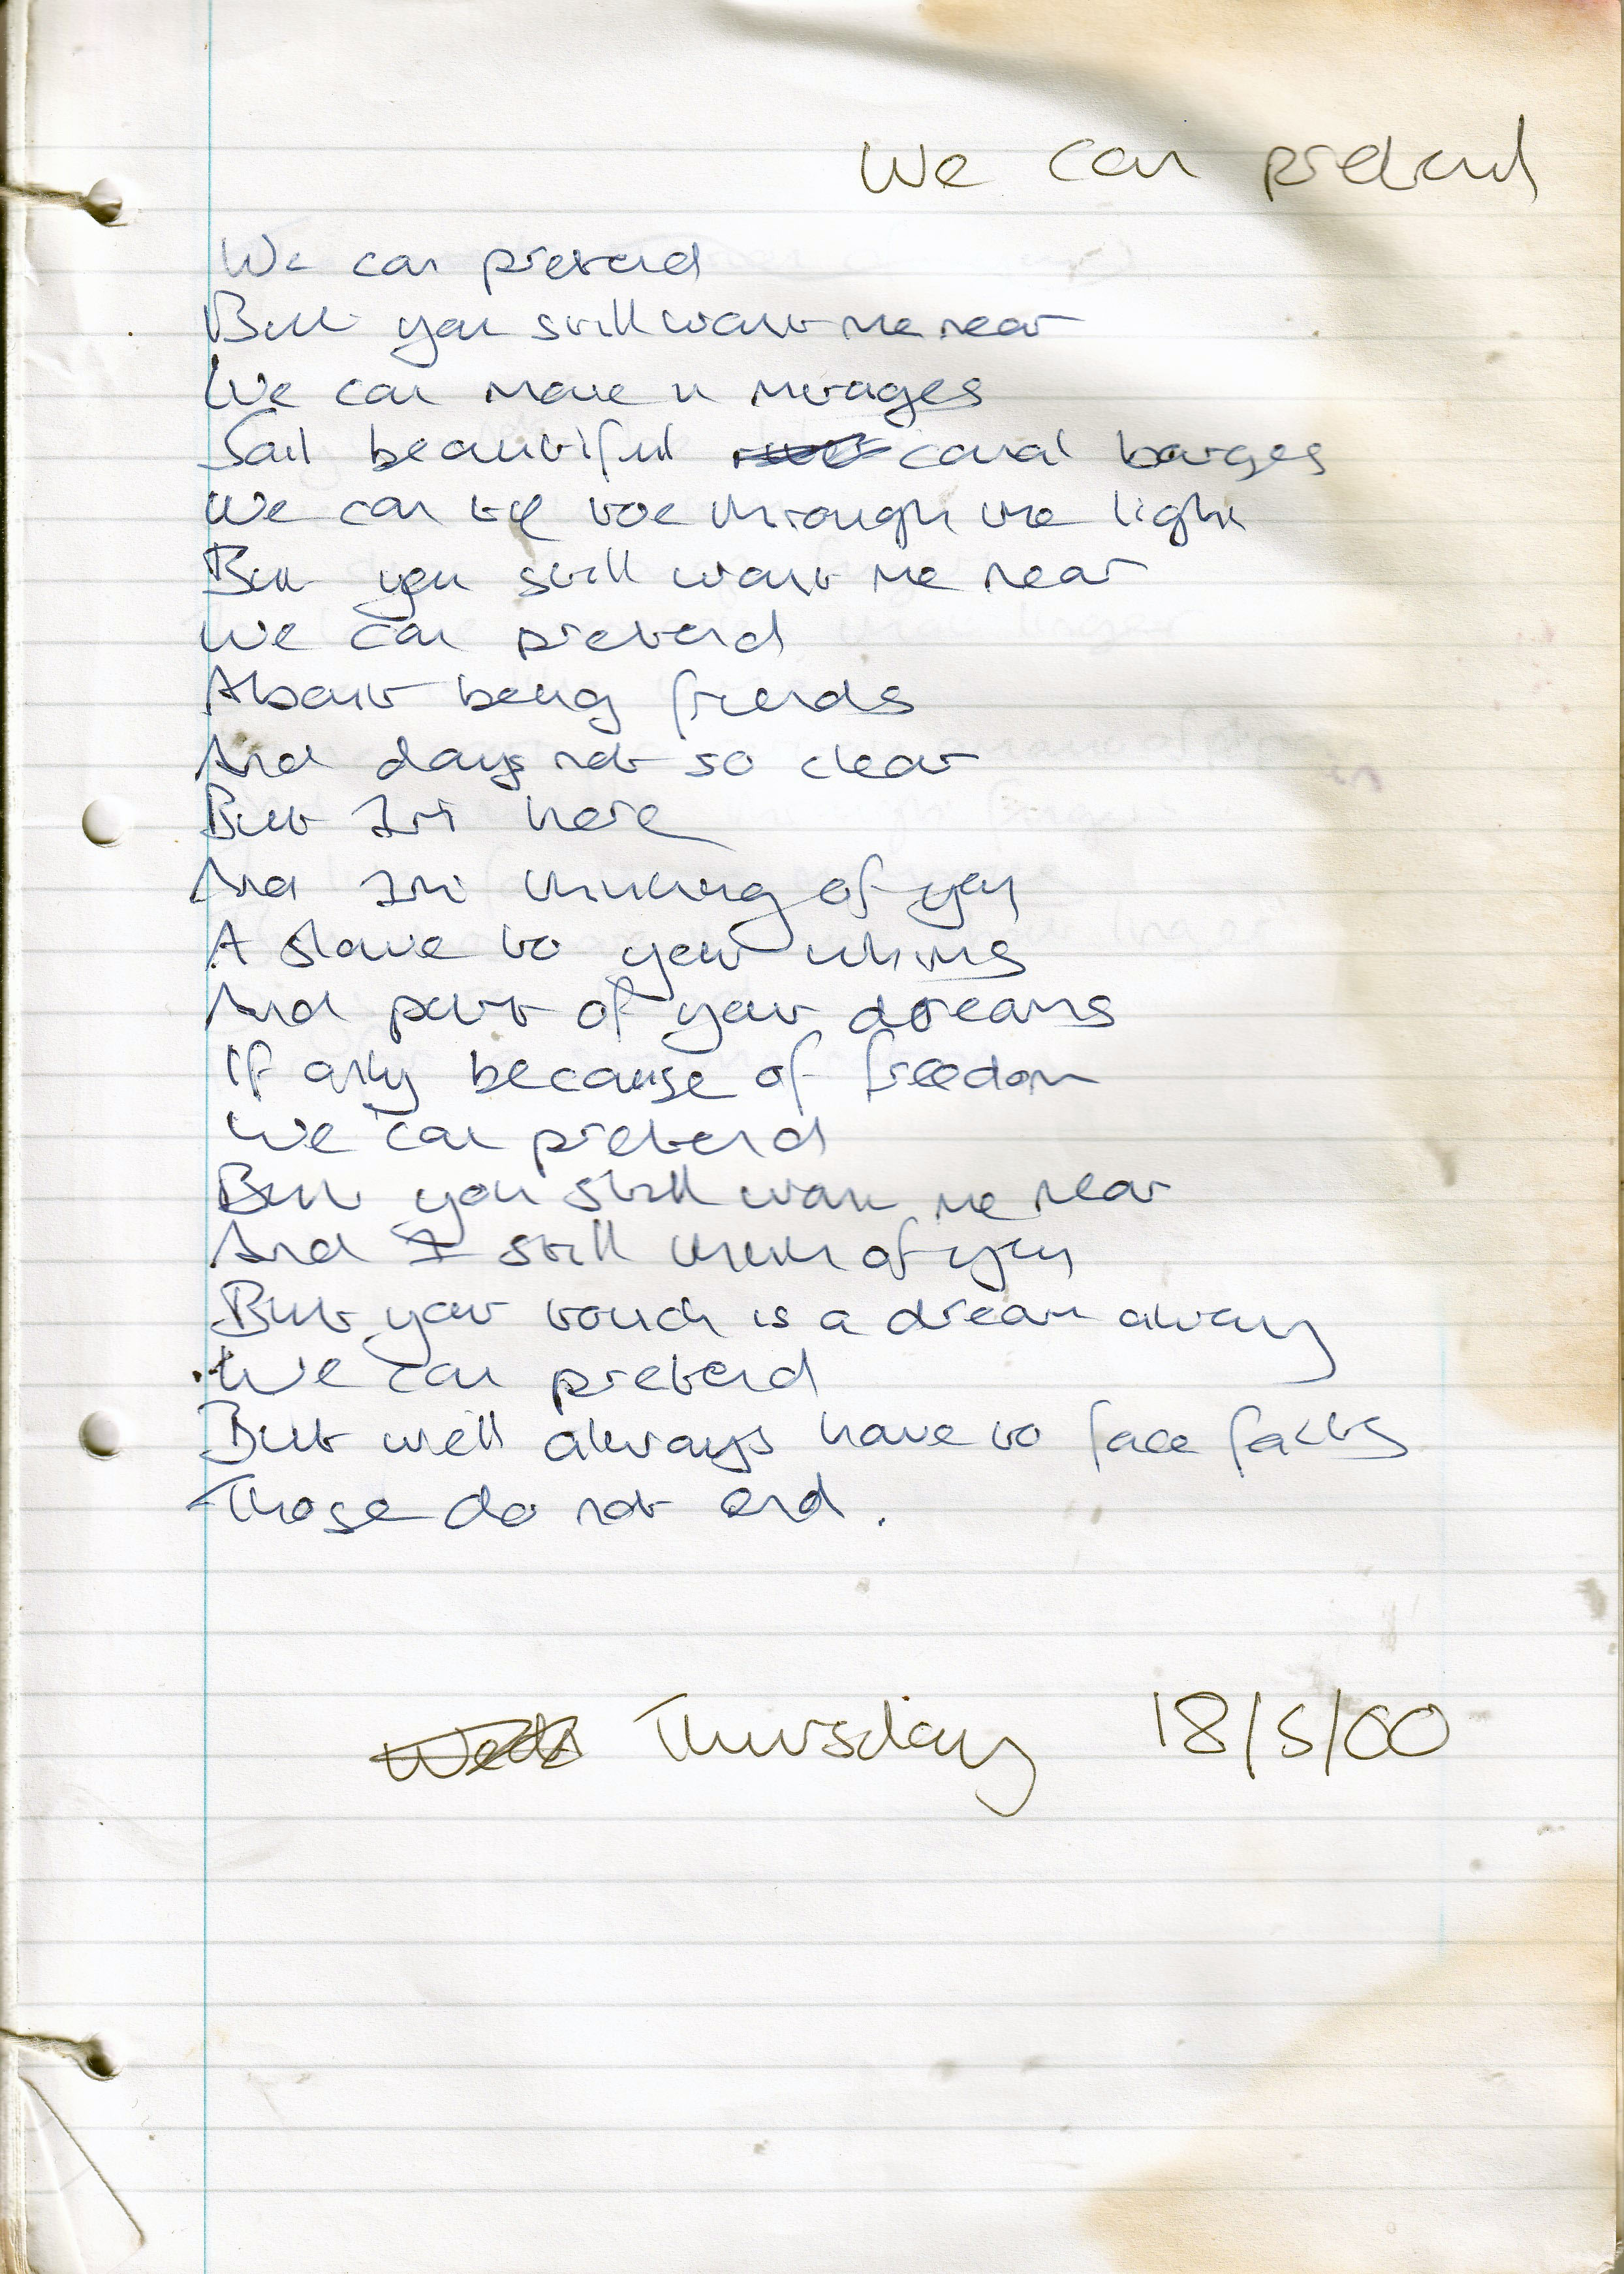 We can pretend
We can pretend
But you still want me near
We can move in mirages
Sail beautiful canal barges
We can tip toe through the light
But you still want me near
We can pretend
About being friends
And days not so clear
But I'm here
And I'm thinking of you
A slave to your whims
And part of your dreams
If only because of freedom
We can pretend
But you still want me near
And I still think of you
But your touch is a dream away
We can pretend
But we'll always have to face facts
Those do not end.
Thursday 18/5/00